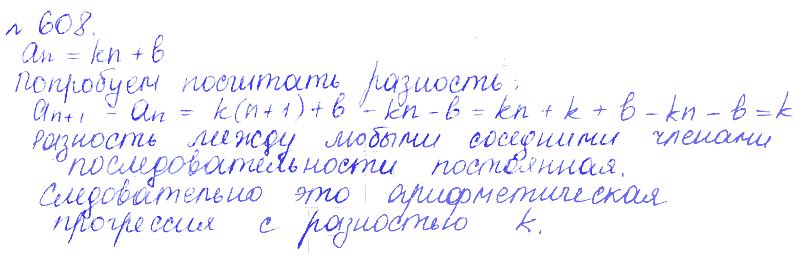 № 608.
aₙ = kn + b
Попробуем посчитать разность:
aₙ₊₁ - aₙ = k(n+1) + b - kn - b = kn + k + b - kn - b = k
Разность между любыми соседними членами
последовательности постоянная.
Следовательно это арифметическая
прогрессия с разностью k.